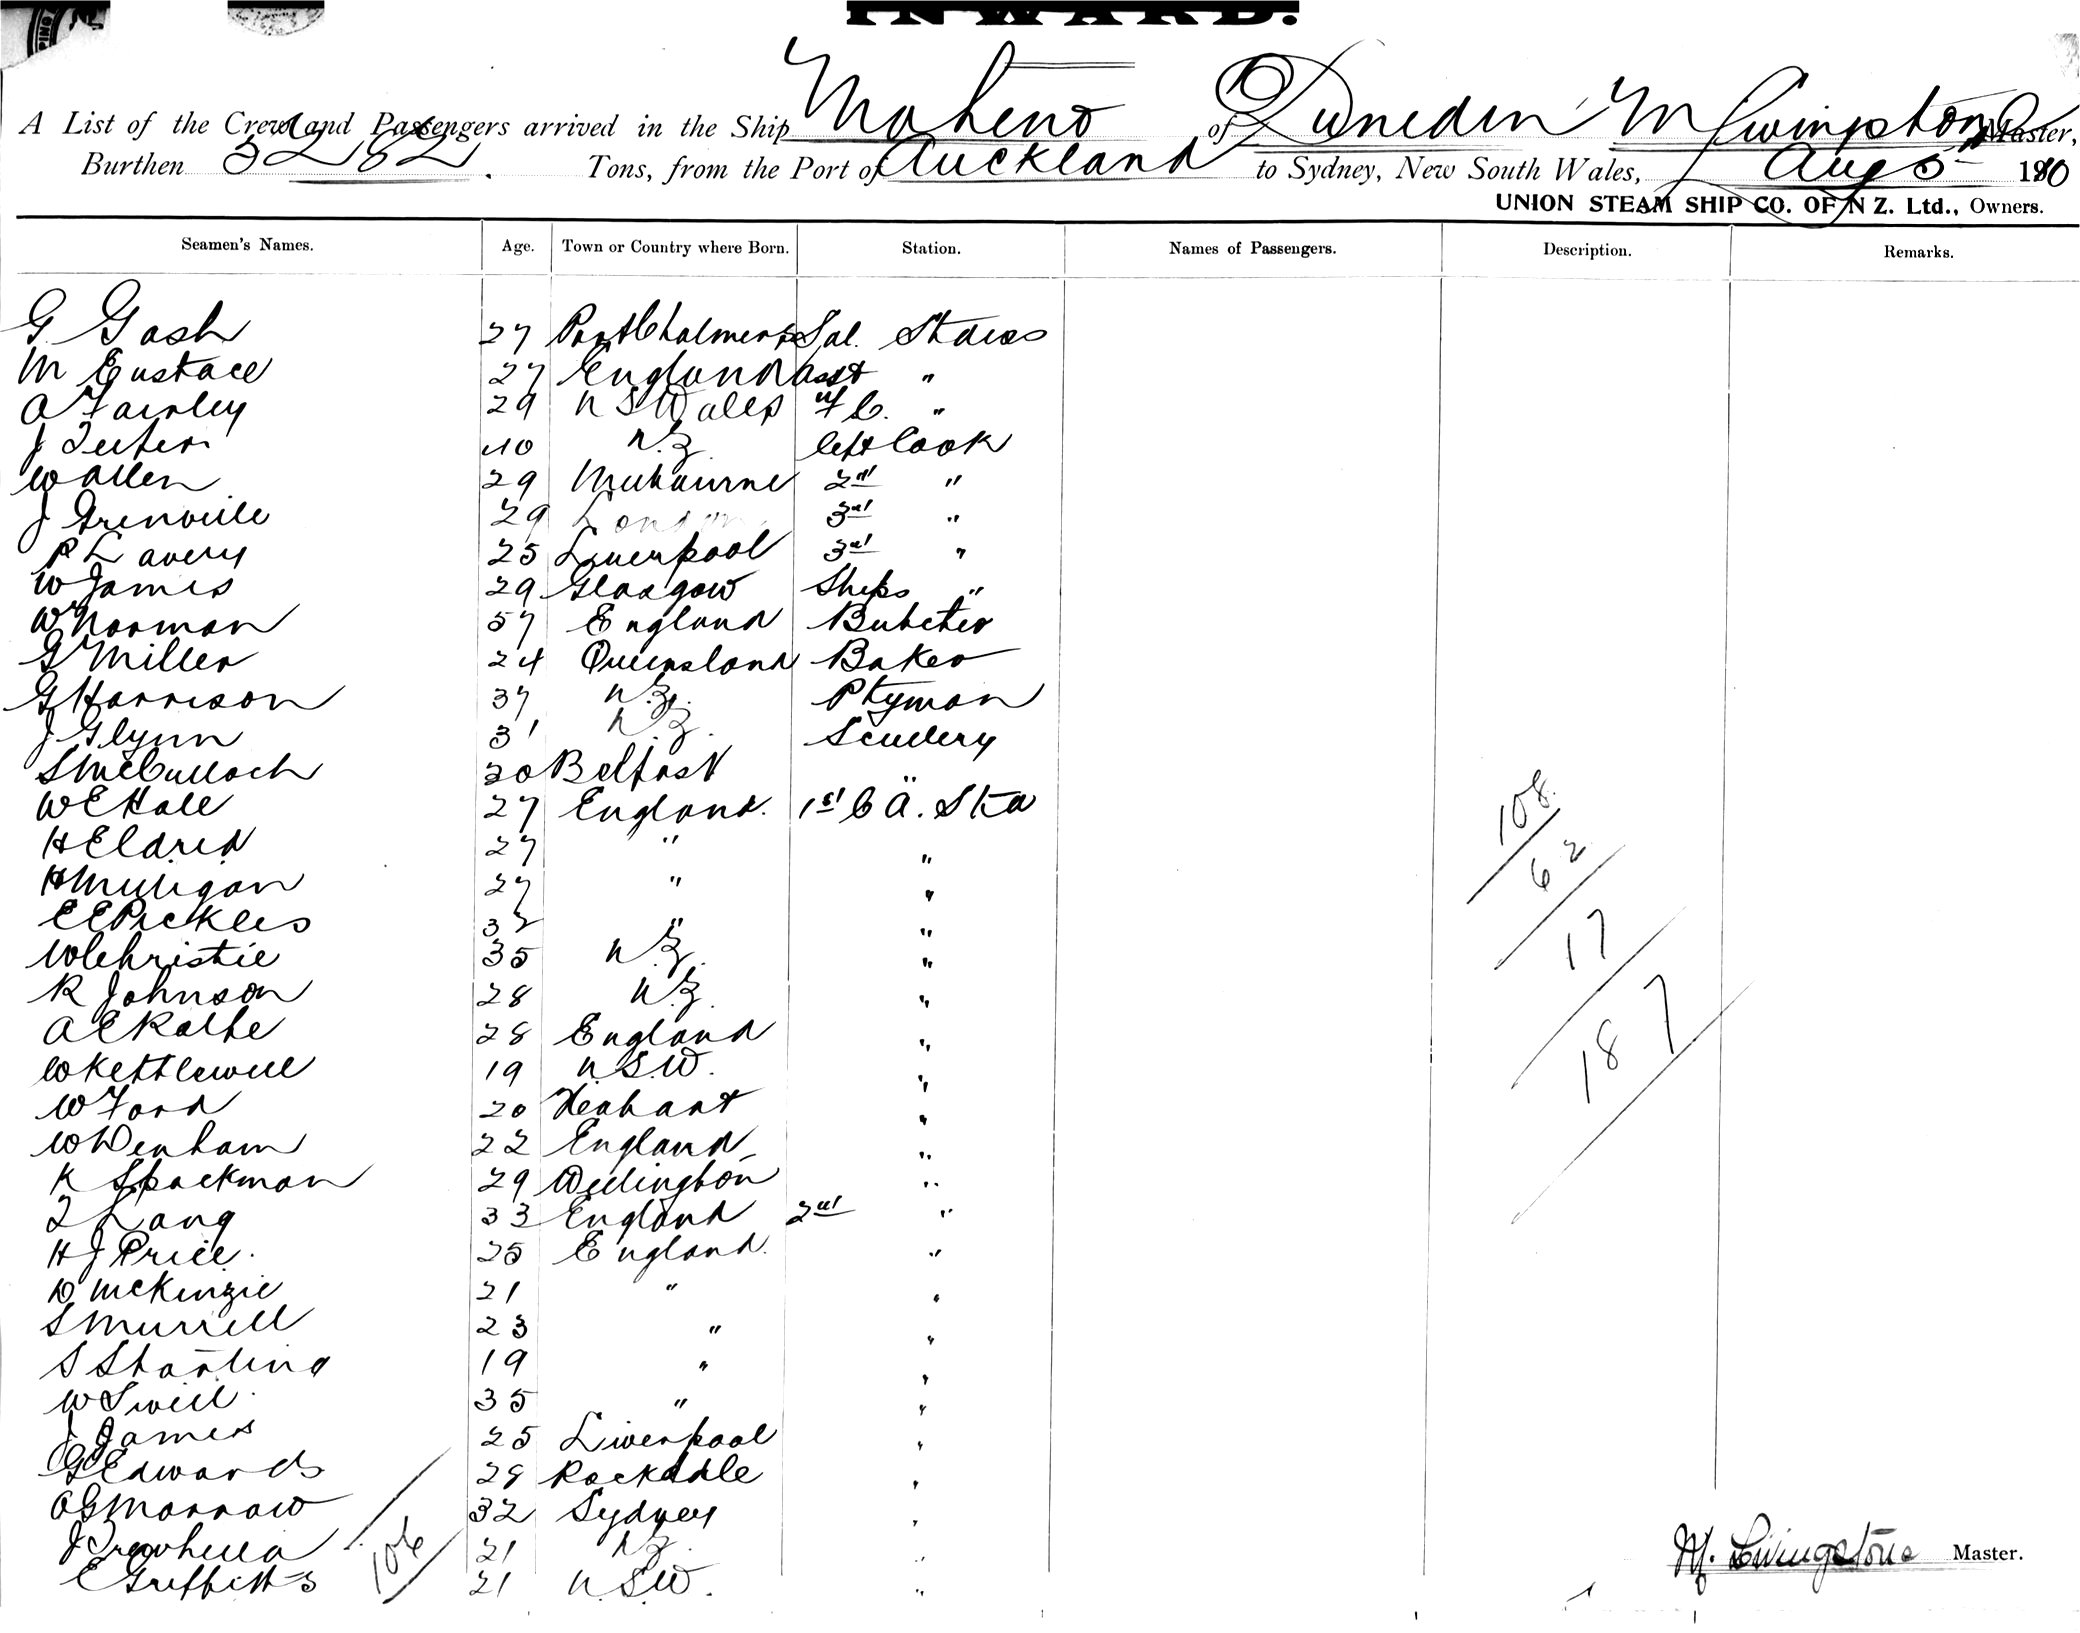 INWARD.
A List of the Crew and Passengers arrived in the Ship Maheno of Dunedin M Livingston Master,
Burthen 3282 Tons, from the Port of Auckland to Sydney, New South Wales, Aug 5th 1910
UNION STEAM SHIP CO. OF N Z. Ltd., Owners.
Seamen's Names. Age. Town or Country where Born. Station. Names of Passengers. Description. Remarks.
G Gash 27 Port Chalmers Sal. Stwess
M Eustace 27 England asst "
A Fairley 29 N S Wales "
J 40 N.Z. Cook
W Allen 29 Melbourne 2nd "
J Grenville 29 London 3rd "
P Lavery 25 Liverpool 3rd "
W James 29 Glasgow Ships "
W Norman 57 England Butcher
G Miller 24 Queensland Baker
G Harrison 37 N.Z. Ptyman
J Glynn 31 N.Z. Scullery
S McCulloch 20 Belfast "
W E Hall 27 England. 1st
H Eldred 27 " "
H Mulligan 27 " "
E E Pickles 32 " "
W Christie 35 N.Z. "
R Johnson 28 N.Z. "
A E Rolfe 28 England "
W Kettlewell 19 N.S.W. "
W Ford 20 "
W Denham 22 England "
K Spackman 29 Wellington "
Lang 33 England 2nd "
H J Price. 25 England. "
D McKenzie 21 " "
S Murrell 23 " "
S Starling 19 " "
W Swill 35 " "
J James 25 Liverpool "
G Edwards 28 Rockdale "
A G Morrow 32 Sydney "
J Trewhella 21 N.Z. "
E Griffiths 21 N.S.W. "
106
108.
62
17
187
M. Livingstone Master.